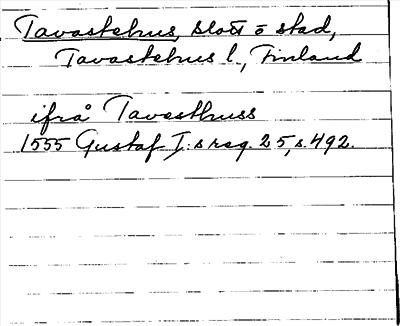 Tavastehus, slott o stad,
Tavastehus l., Finland
ifrå Tavesthuss
1555 Gustaf I:s reg. 25, s. 492.